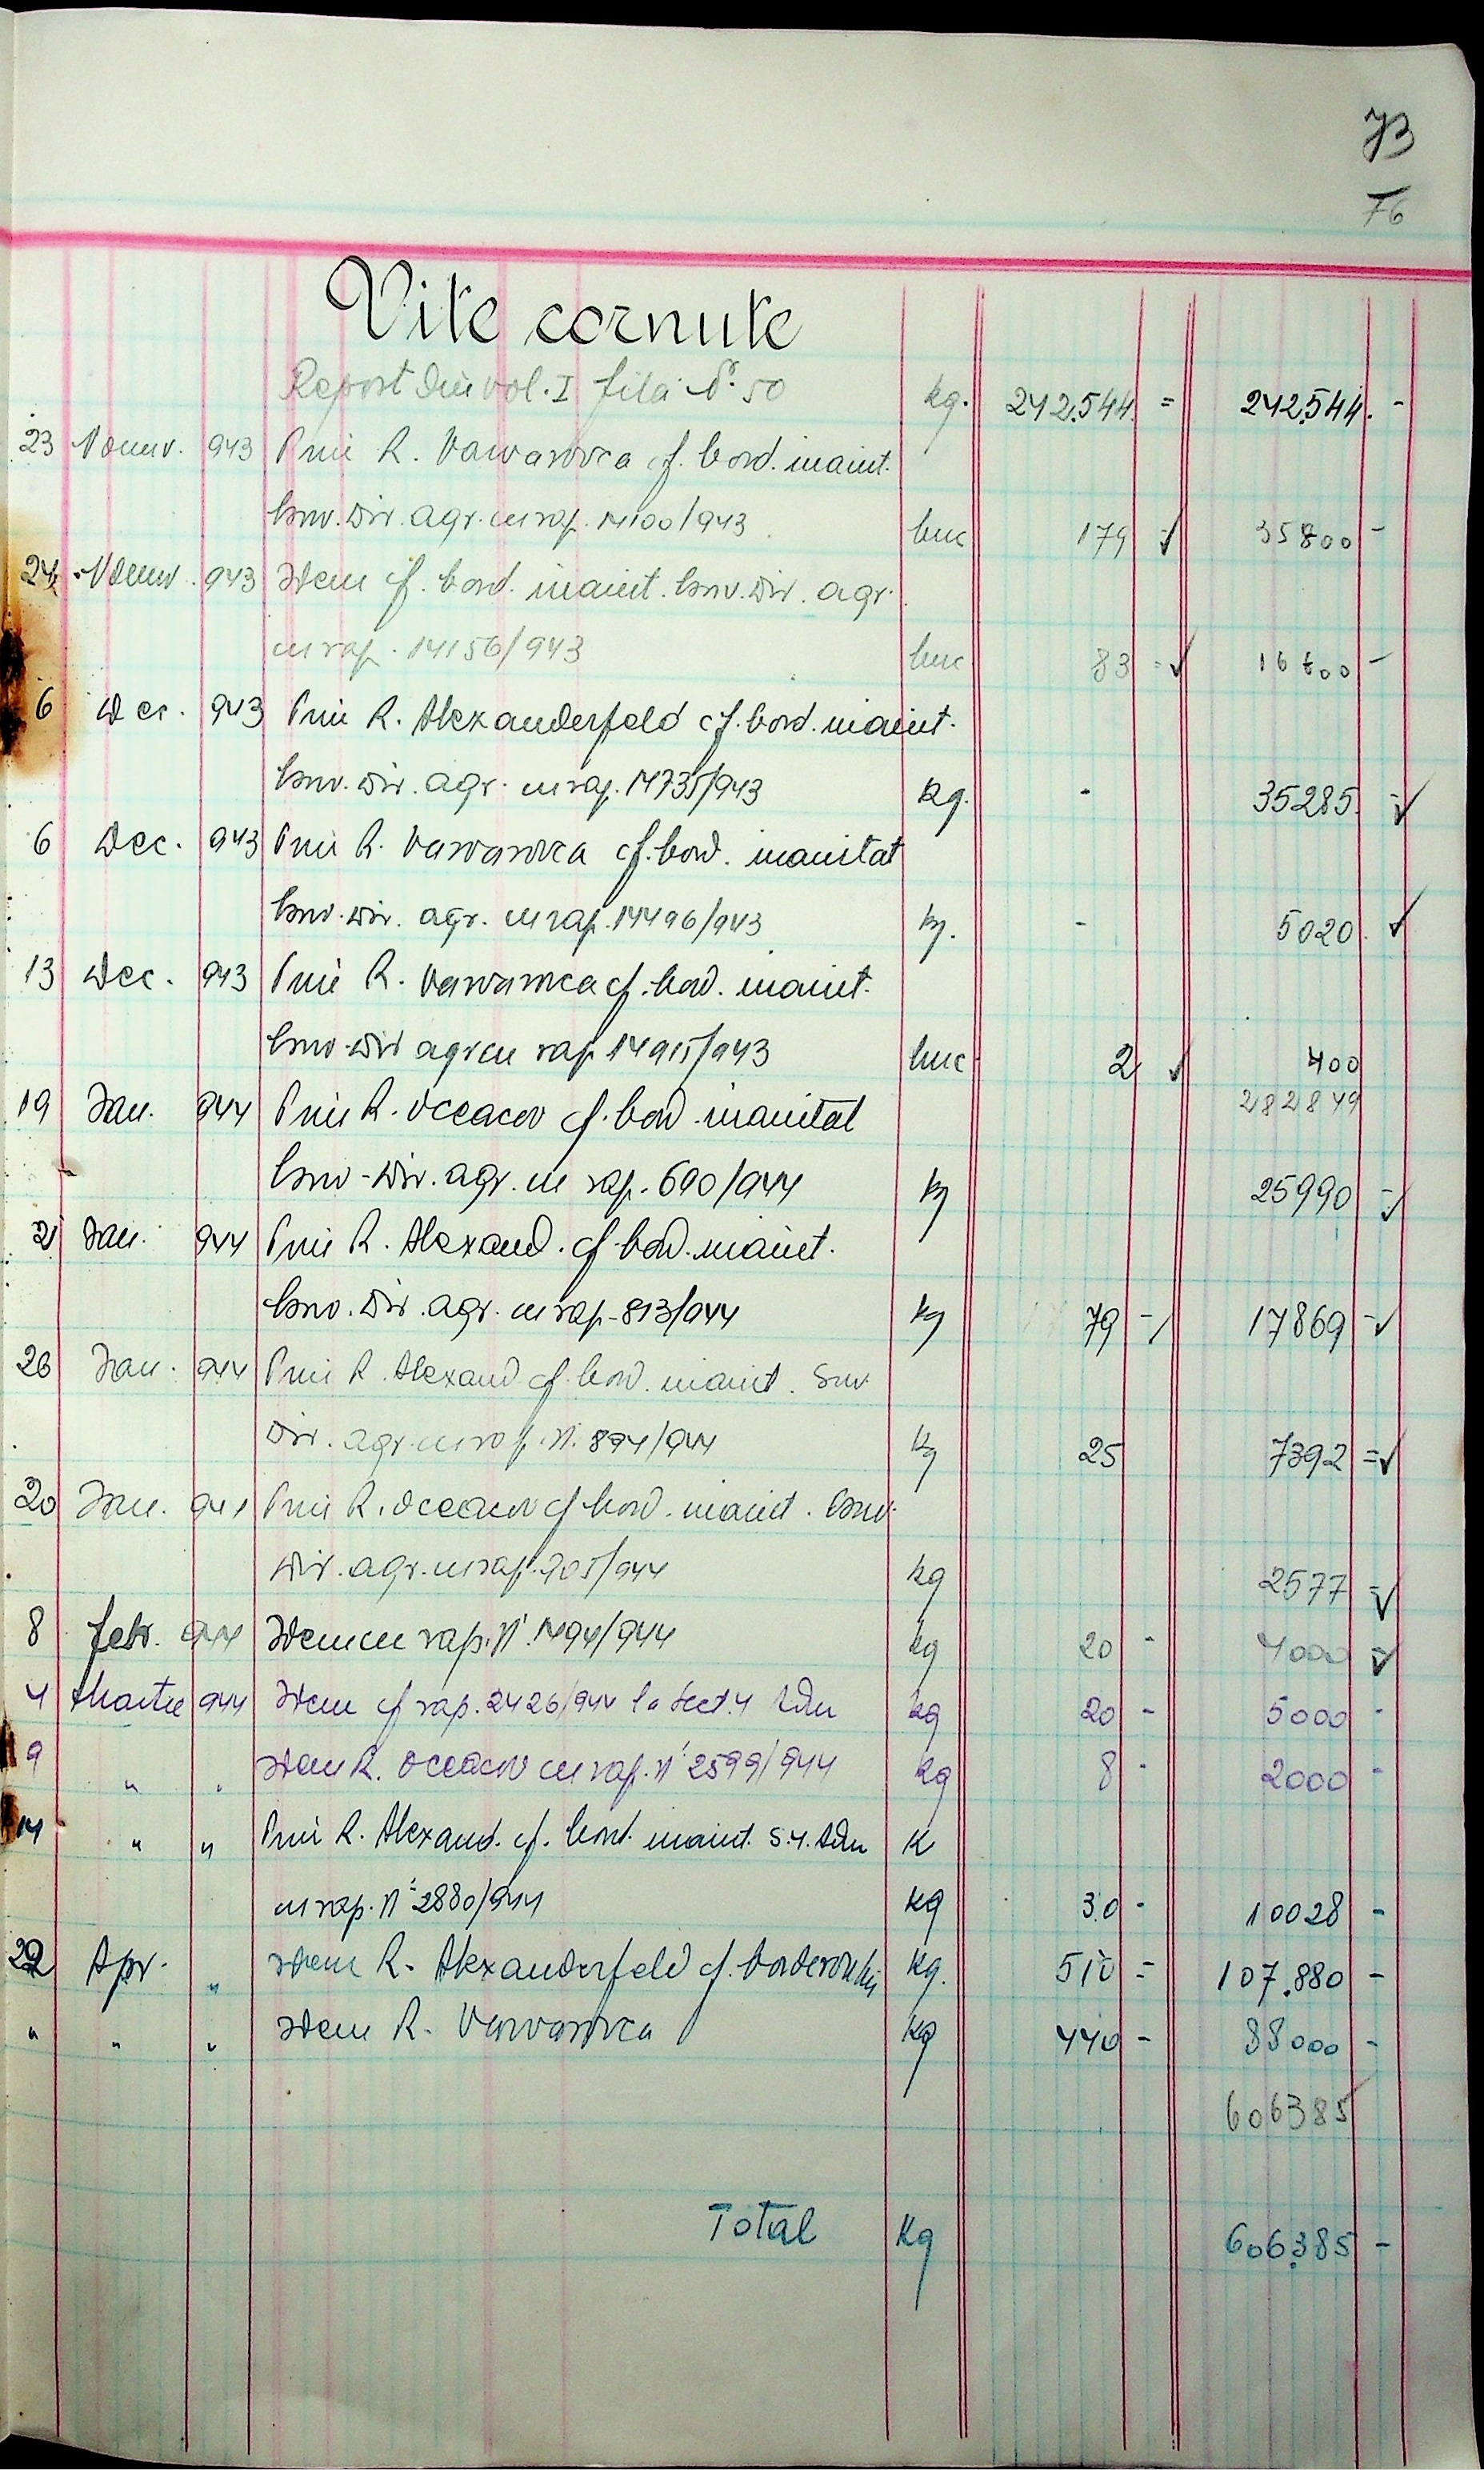 73
76
Vite cornute
Report din vol. I fila No. 50 kg. 242.544 = 242.544. -
23 Noemv. 943 Prin R. Varvarovca cf. bord. inaint.
Serv. Dir. agr. cu rap. 14100/943 buc 179 35800 -
24 Noemv. 943 Idem cf. bord. inaint. Serv. Dir. agr.
cu rap. 14156/943 buc 83 = 16600 -
6 Dec. 943 Prin R. Alexanderfeld cf. bord. inaint.
Serv. Dir. agr. cu rap. 14735/943 kg. - 35285
6 Dec. 943 Prin R. Varvarovca cf. bord. inaintat
Serv. Dir. agr. cu rap. 14496/943 kg. - 5020
13 Dec. 943 Prin R. Varvarovca cf. bord. inaint.
Serv. Dir agr cu rap 14915/943 buc 2 400
282849
19 Ian. 944 Prin R. Oceacov cf. bord. inaintat
Serv. Dir. agr. cu rap. 690/944 kg 25990 -
21 Ian. 944 Prin R. Alexand. cf. bord. inaint.
Serv. Dir. agr. cu rap. 813/944 kg 79 - 17869 -
26 Ian. 944 Prin R. Alexand. cf. bord. inaint. Serv.
Dir. agr. cu rap. N. 894/944 kg 25 7392 =
20 Ian. 944 Prin R. Oceacov cf bord. inaint. Serv.
Dir. agr. cu rap. 905/944 kg 2577 =
8 Febr. 944 Idem cu rap. N. 1494/944 kg 20 - 4000 =
4 Martie 944 Idem cf rap. 2426/944 la Sect. 4 Adm kg 20 - 5000 -
9 " " Idem R. Oceacov cu rap. N 2599/944 kg 8 - 2000 -
14 " " Prin R. Alexand. cf. bord. inaint. S. 4. Adm K
cu rap. N 2880/944 kg 30 - 10028 -
22 Apr. " Idem R. Alexanderfeld cf. borderoului kg. 510 = 107.880 -
" " " Idem R. Varvarovca kg 440 - 88000 -
606385
Total Kg 606.385 -